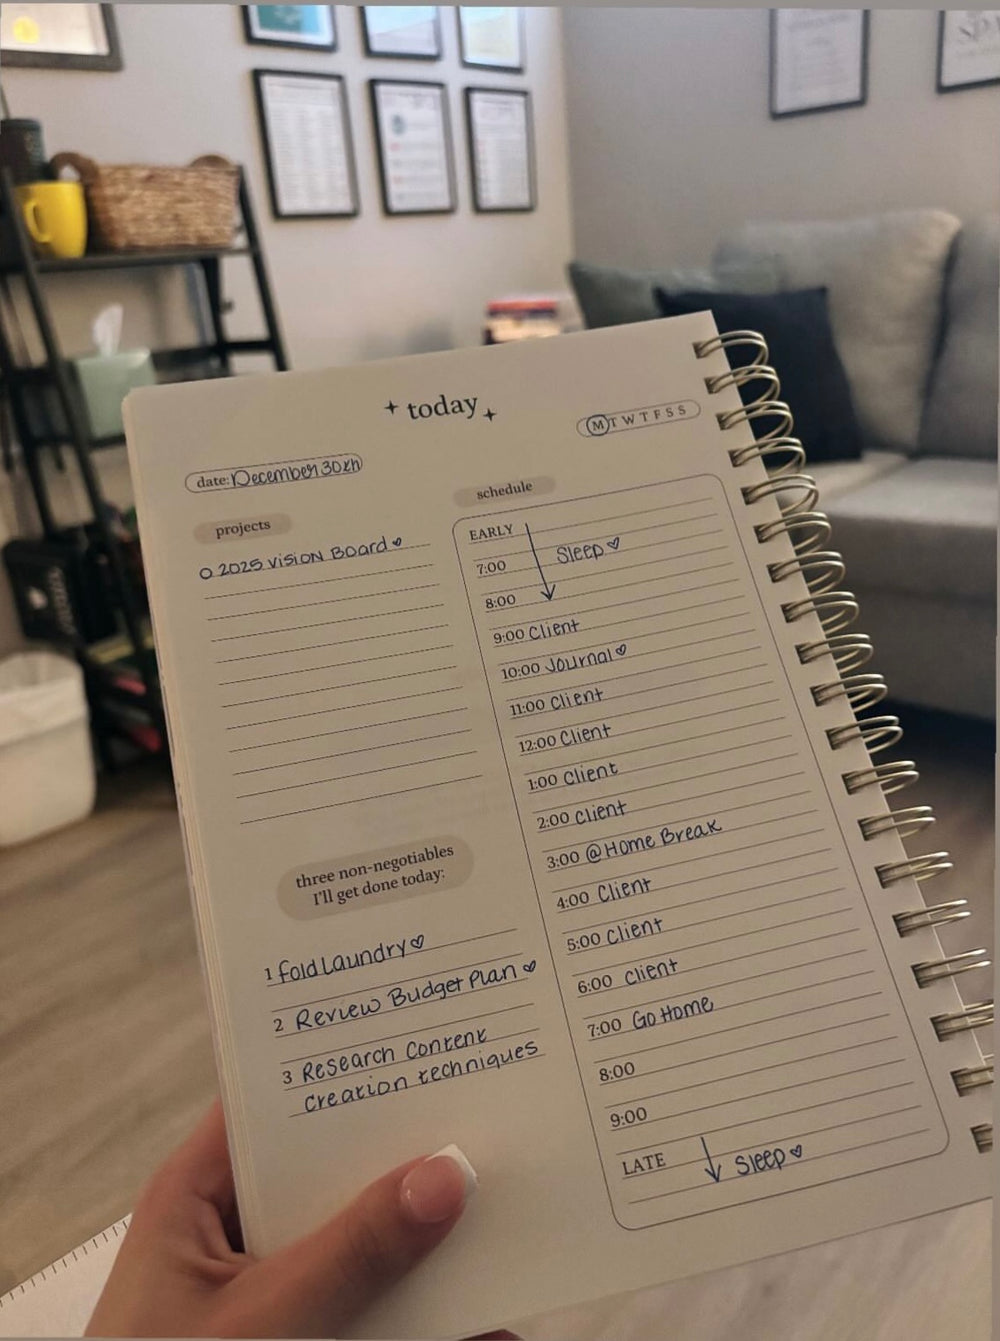 today
M T W T F S S
date: December 30th
projects
2025 Vision Board
three non-negotiables
I'll get done today:
1 fold Laundry
2 Review Budget Plan
3 Research Content
creation techniques
schedule
EARLY
7:00 Sleep
8:00
9:00 Client
10:00 Journal
11:00 Client
12:00 Client
1:00 Client
2:00 Client
3:00 @Home Break
4:00 Client
5:00 Client
6:00 Client
7:00 Go Home
8:00
9:00
LATE Sleep